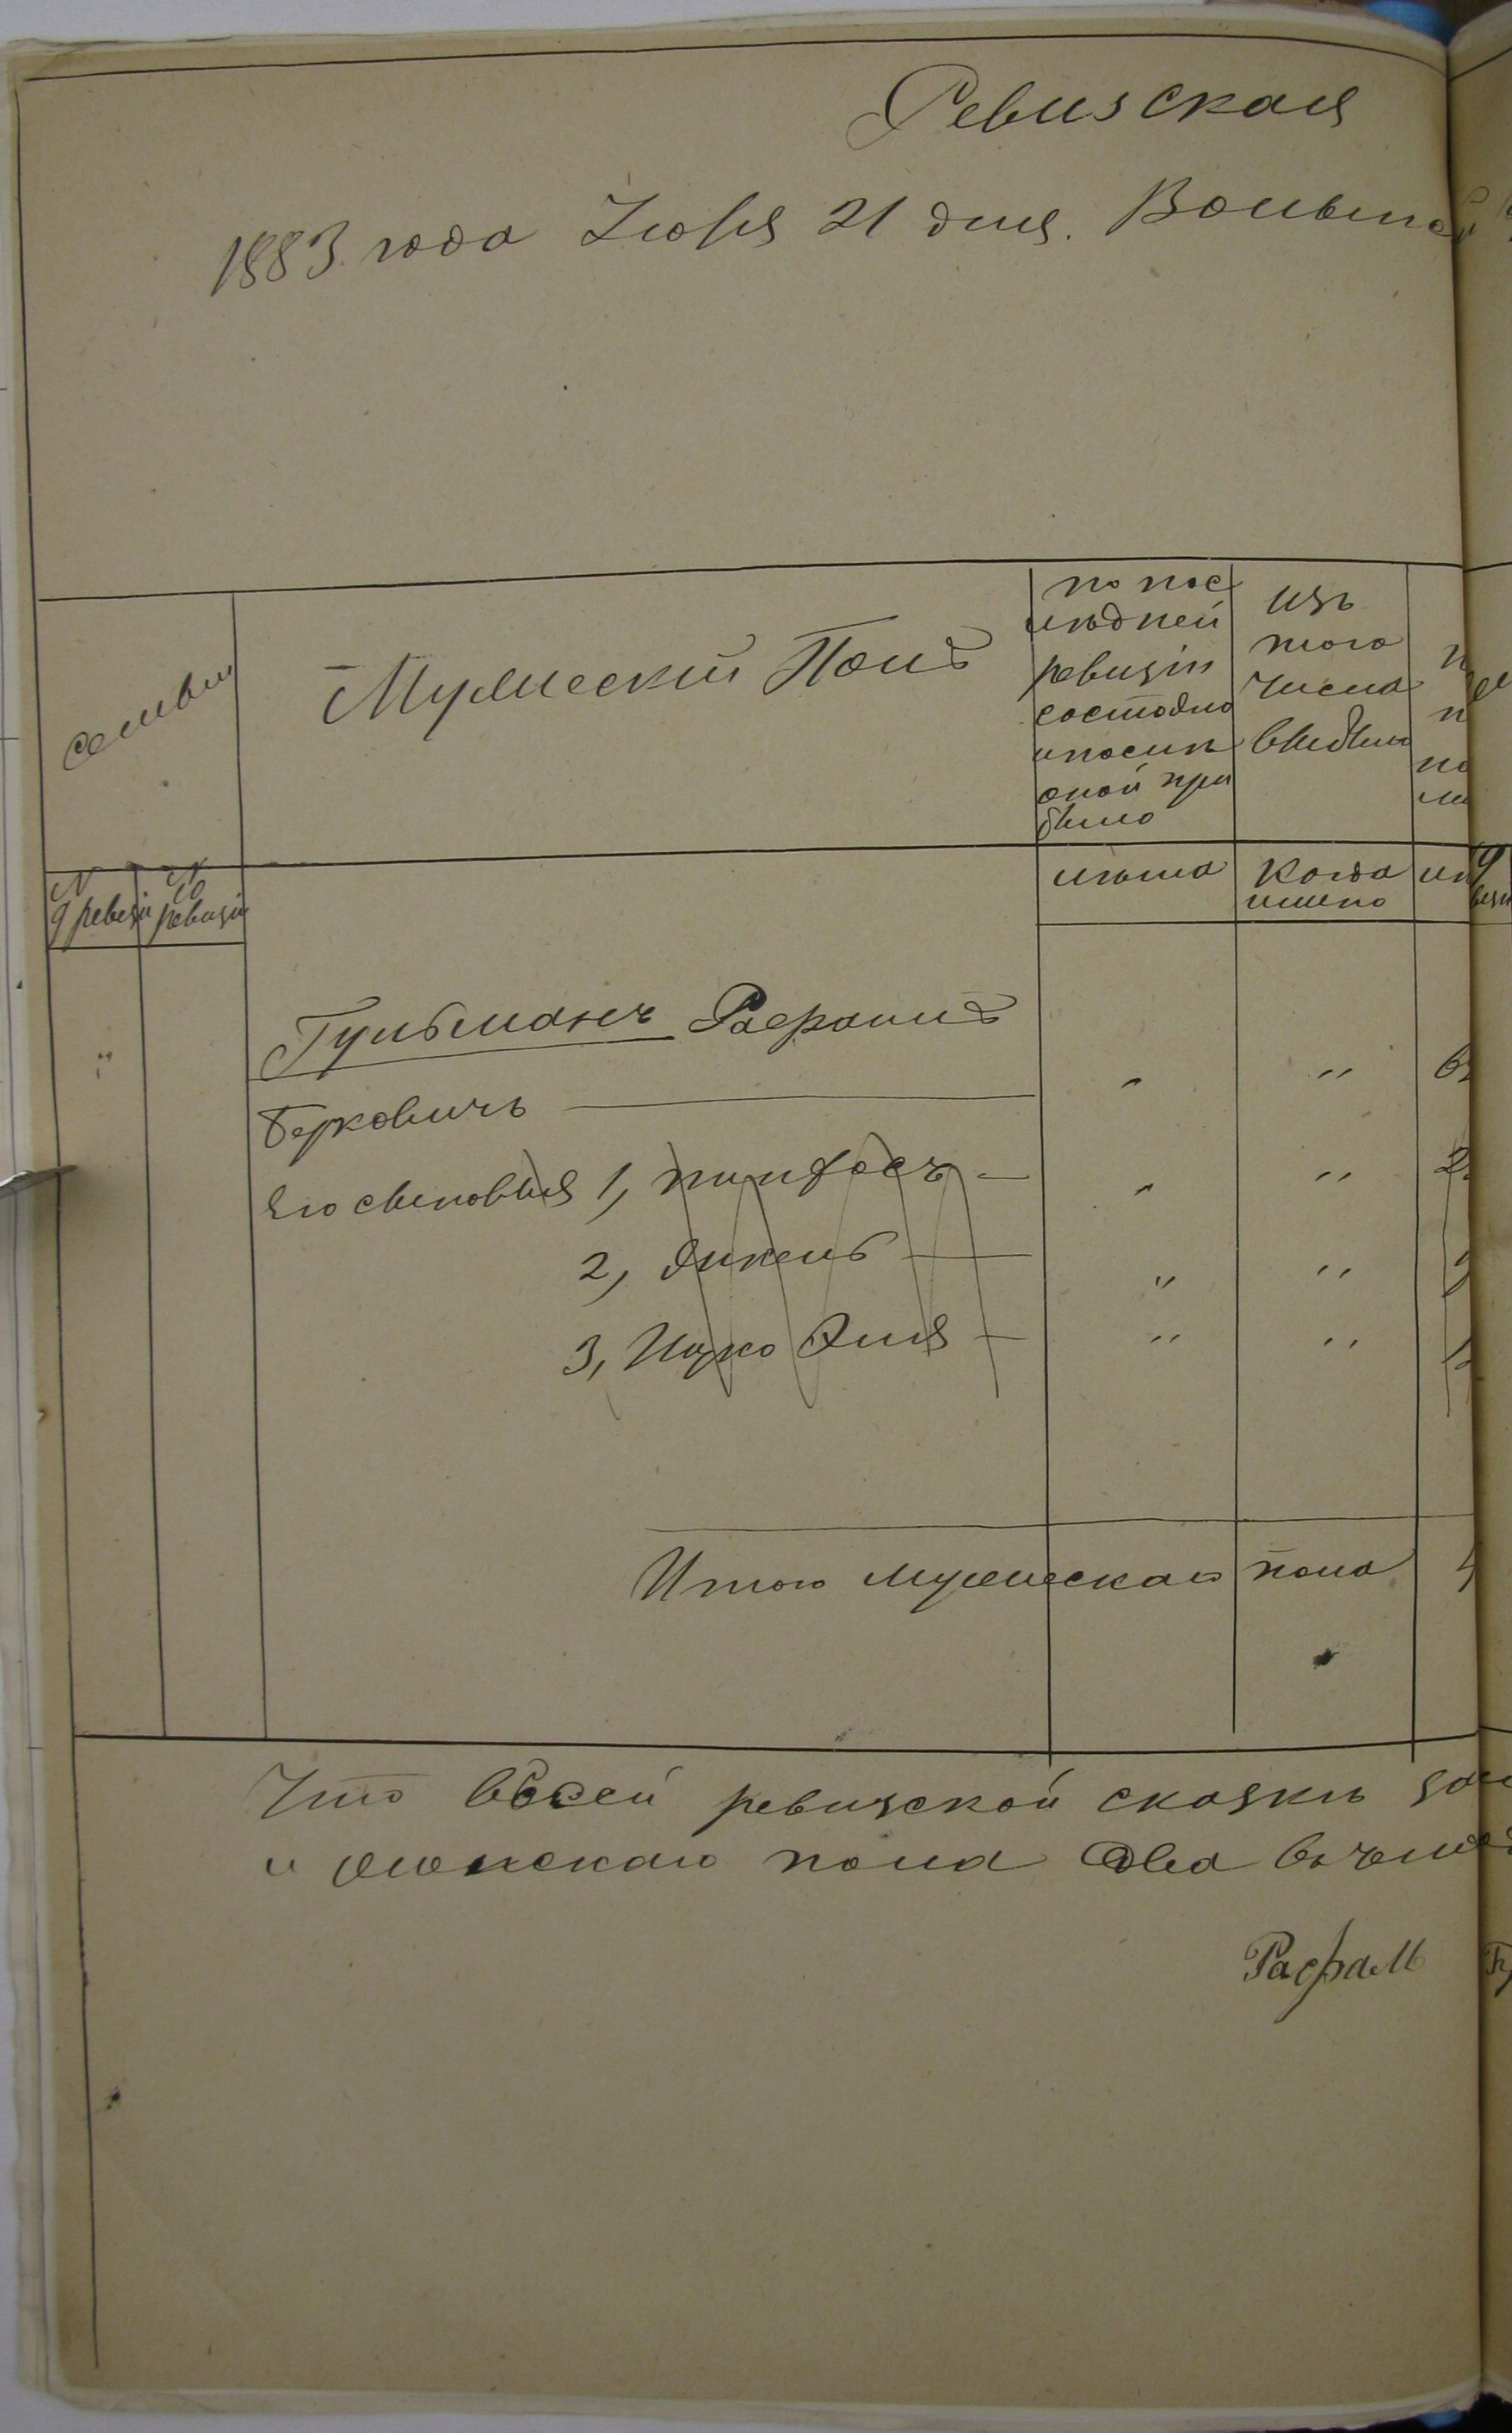 Ревизская
1883 года Июля 21 дня. Волынс
семьи
Мужеский Полъ
по пос
лѣдней
ревизіи
состояло
и послѣ
оной при
было
изъ
того
числа
выбыло
№
9 ревизіи
№
10
ревизіи
лѣта
Когда
имено
Гульманъ Рафаилъ
Берковичъ
его сыновья 1, пинхасъ
2,
3, Ицко Эля
Итого мужескаго пола
Что в сей ревизской сказкѣ
и женскаго пола два
Рафаил